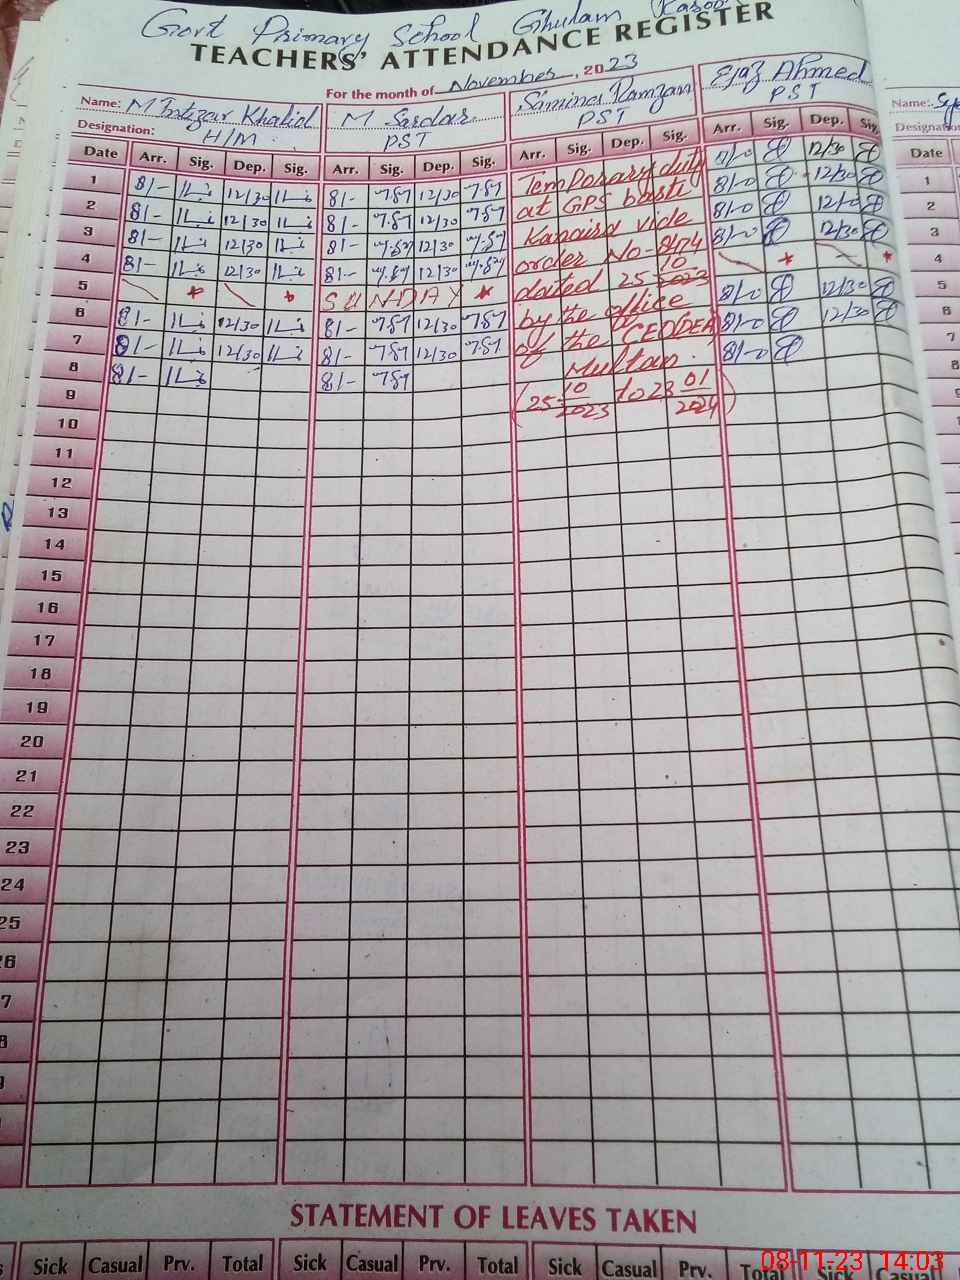 Govt Primary School Ghulam Rasool
TEACHERS' ATTENDANCE REGISTER
For the month of November, 2023
Name: M Intizar Khalid M Sardar Samina Ramzan Ejaz Ahmed Name:
Designation: H/M PST PST PST Designation
Date Arr. Sig. Dep. Sig. Arr. Sig. Dep. Sig. Arr. Sig. Dep. Sig. Arr. Sig. Dep. Sig. Date
1 8/- 12/30 8/- 12/30 8/-0 12/30 1
2 8/- 12/30 8/- 12/30 8/-0 12/30 2
3 8/- 12/30 8/- 12/30 8/-0 3
4 8/- 12/30 8/- 12/30 8/-0 12/30 4
5 SUNDAY 5
6 8/- 12/30 8/- 12/30 8/-0 12/30 6
7 8/- 12/30 8/- 12/30 8/-0 12/30 7
8 8/- 8/- 8/-0 8
Temporary duty
at GPS basti
Kanaira vide
order No-8174
dated 25-10-2023
by the office
of the CEO(DEA)
Multan.
(25-10-2023 to 23-01-2024)
9
10
11
12
13
14
15
16
17
18
19
20
21
22
23
24
25
26
7
8
9
STATEMENT OF LEAVES TAKEN
Sick Casual Prv. Total Sick Casual Prv. Total Sick Casual Prv. Total Sick Casual
08-11-23 14:03